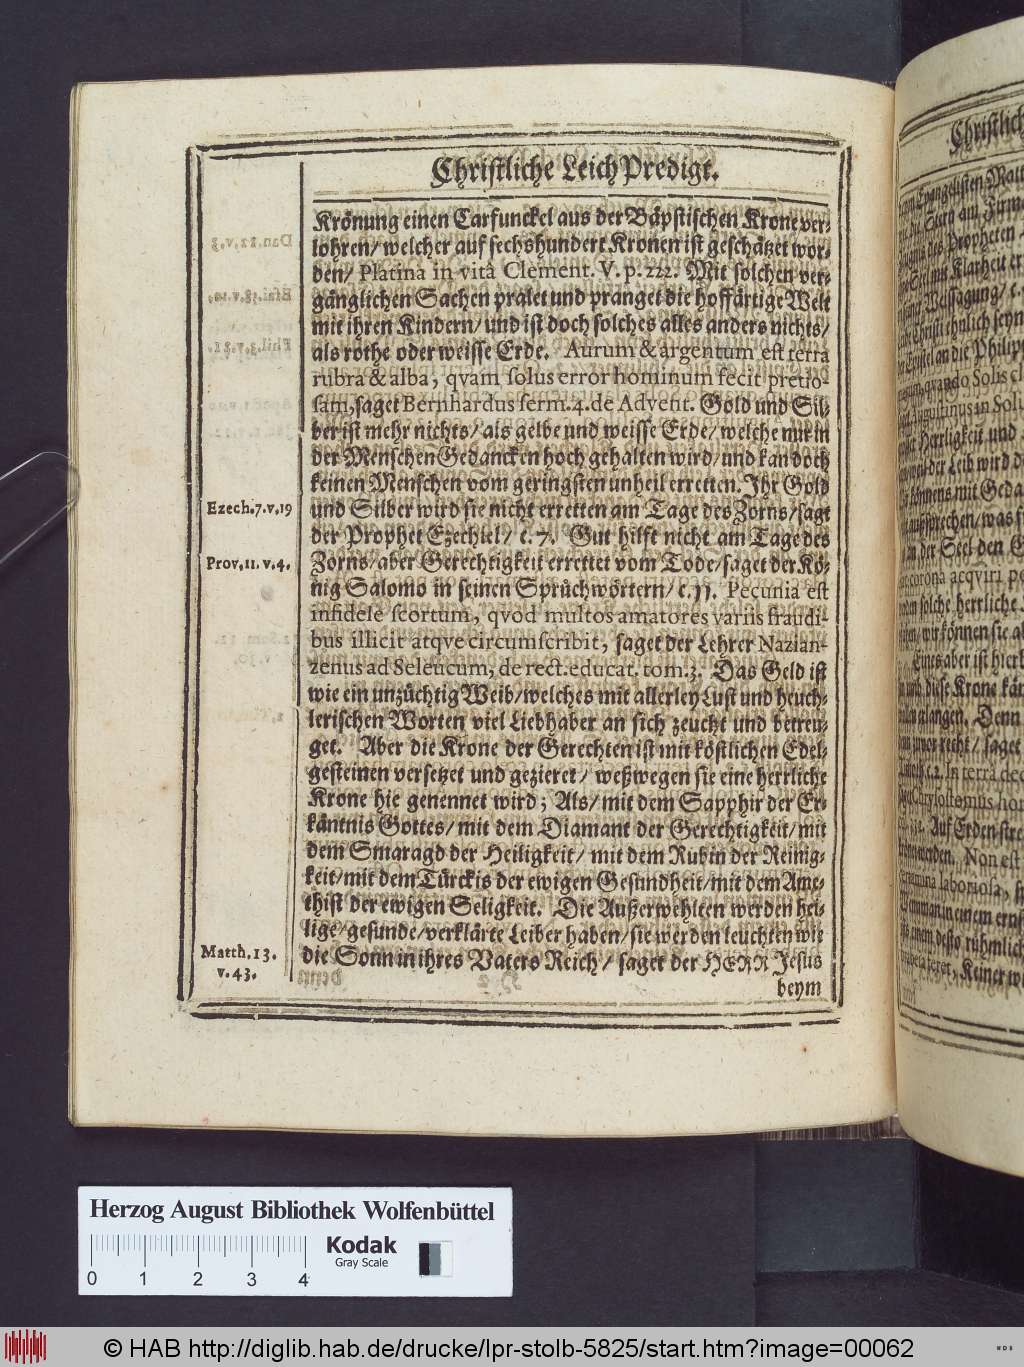 Christliche Leich Predigt.
Krönung einen Carfunckel aus der Bäpstischen Krone ver-
lohren/ welcher auf sechshundert Kronen ist geschätzet wor-
den/ Platina in vitâ Clement. V. p. 222. Mit solchen ver-
gänglichen Sachen pralet und pranget die hoffärtige Welt
mit ihren Kindern/ und ist doch solches alles anders nichts/
als rothe oder weisse Erde. Aurum & argentum est terra
rubra & alba, qvam solus error hominum fecit pretio-
sam, saget Bernhardus serm. 4. de Advent. Gold und Sil-
ber ist mehr nichts/ als gelbe und weisse Erde/ welche nur in
der Menschen Gedancken hoch gehalten wird/ und kan doch
keinen Menschen vom geringsten unheil erretten. Ihr Gold
Ezech. 7. v. 19
und Silber wird sie nicht erretten am Tage des Zorns/ sagt
der Prophet Ezechiel/ c. 7. Gut hilfft nicht am Tage des
Prov. 11. v. 4.
Zorns/ aber Gerechtigkeit errettet vom Tode/ saget der Kö-
nig Salomo in seinen Sprüchwörtern/ c. 11. Pecunia est
infidele scortum, qvod multos amatores variis fraudi-
bus illicit atqve circumscribit, saget der Lehrer Nazian-
zenus ad Seleucum, de rect. educat. tom. 3. Das Geld ist
wie ein unzüchtig Weib/ welches mit allerley Lust und heuch-
lerischen Worten viel Liebhaber an sich zeucht und betreu-
get. Aber die Krone der Gerechten ist mit köstlichen Edel-
gesteinen versetzet und gezieret/ weßwegen sie eine herrliche
Krone hie genennet wird; Als/ mit dem Sapphir der Er-
käntnis Gottes/ mit dem Diamant der Gerechtigkeit/ mit
dem Smaragd der Heiligkeit/ mit dem Rubin der Reinig-
keit/ mit dem Türckis der ewigen Gesundheit/ mit dem Ame-
thist der ewigen Seligkeit. Die Außerwehlten werden hei-
lige/ gesunde/ verklärte Leiber haben/ sie werden leuchten wie
Matth. 13.
v. 43.
die Sonn in ihres Vaters Reich/ saget der HERR Jesus
beym
Herzog August Bibliothek Wolfenbüttel
Kodak
Gray Scale
0 1 2 3 4
© HAB http://diglib.hab.de/drucke/lpr-stolb-5825/start.htm?image=00062